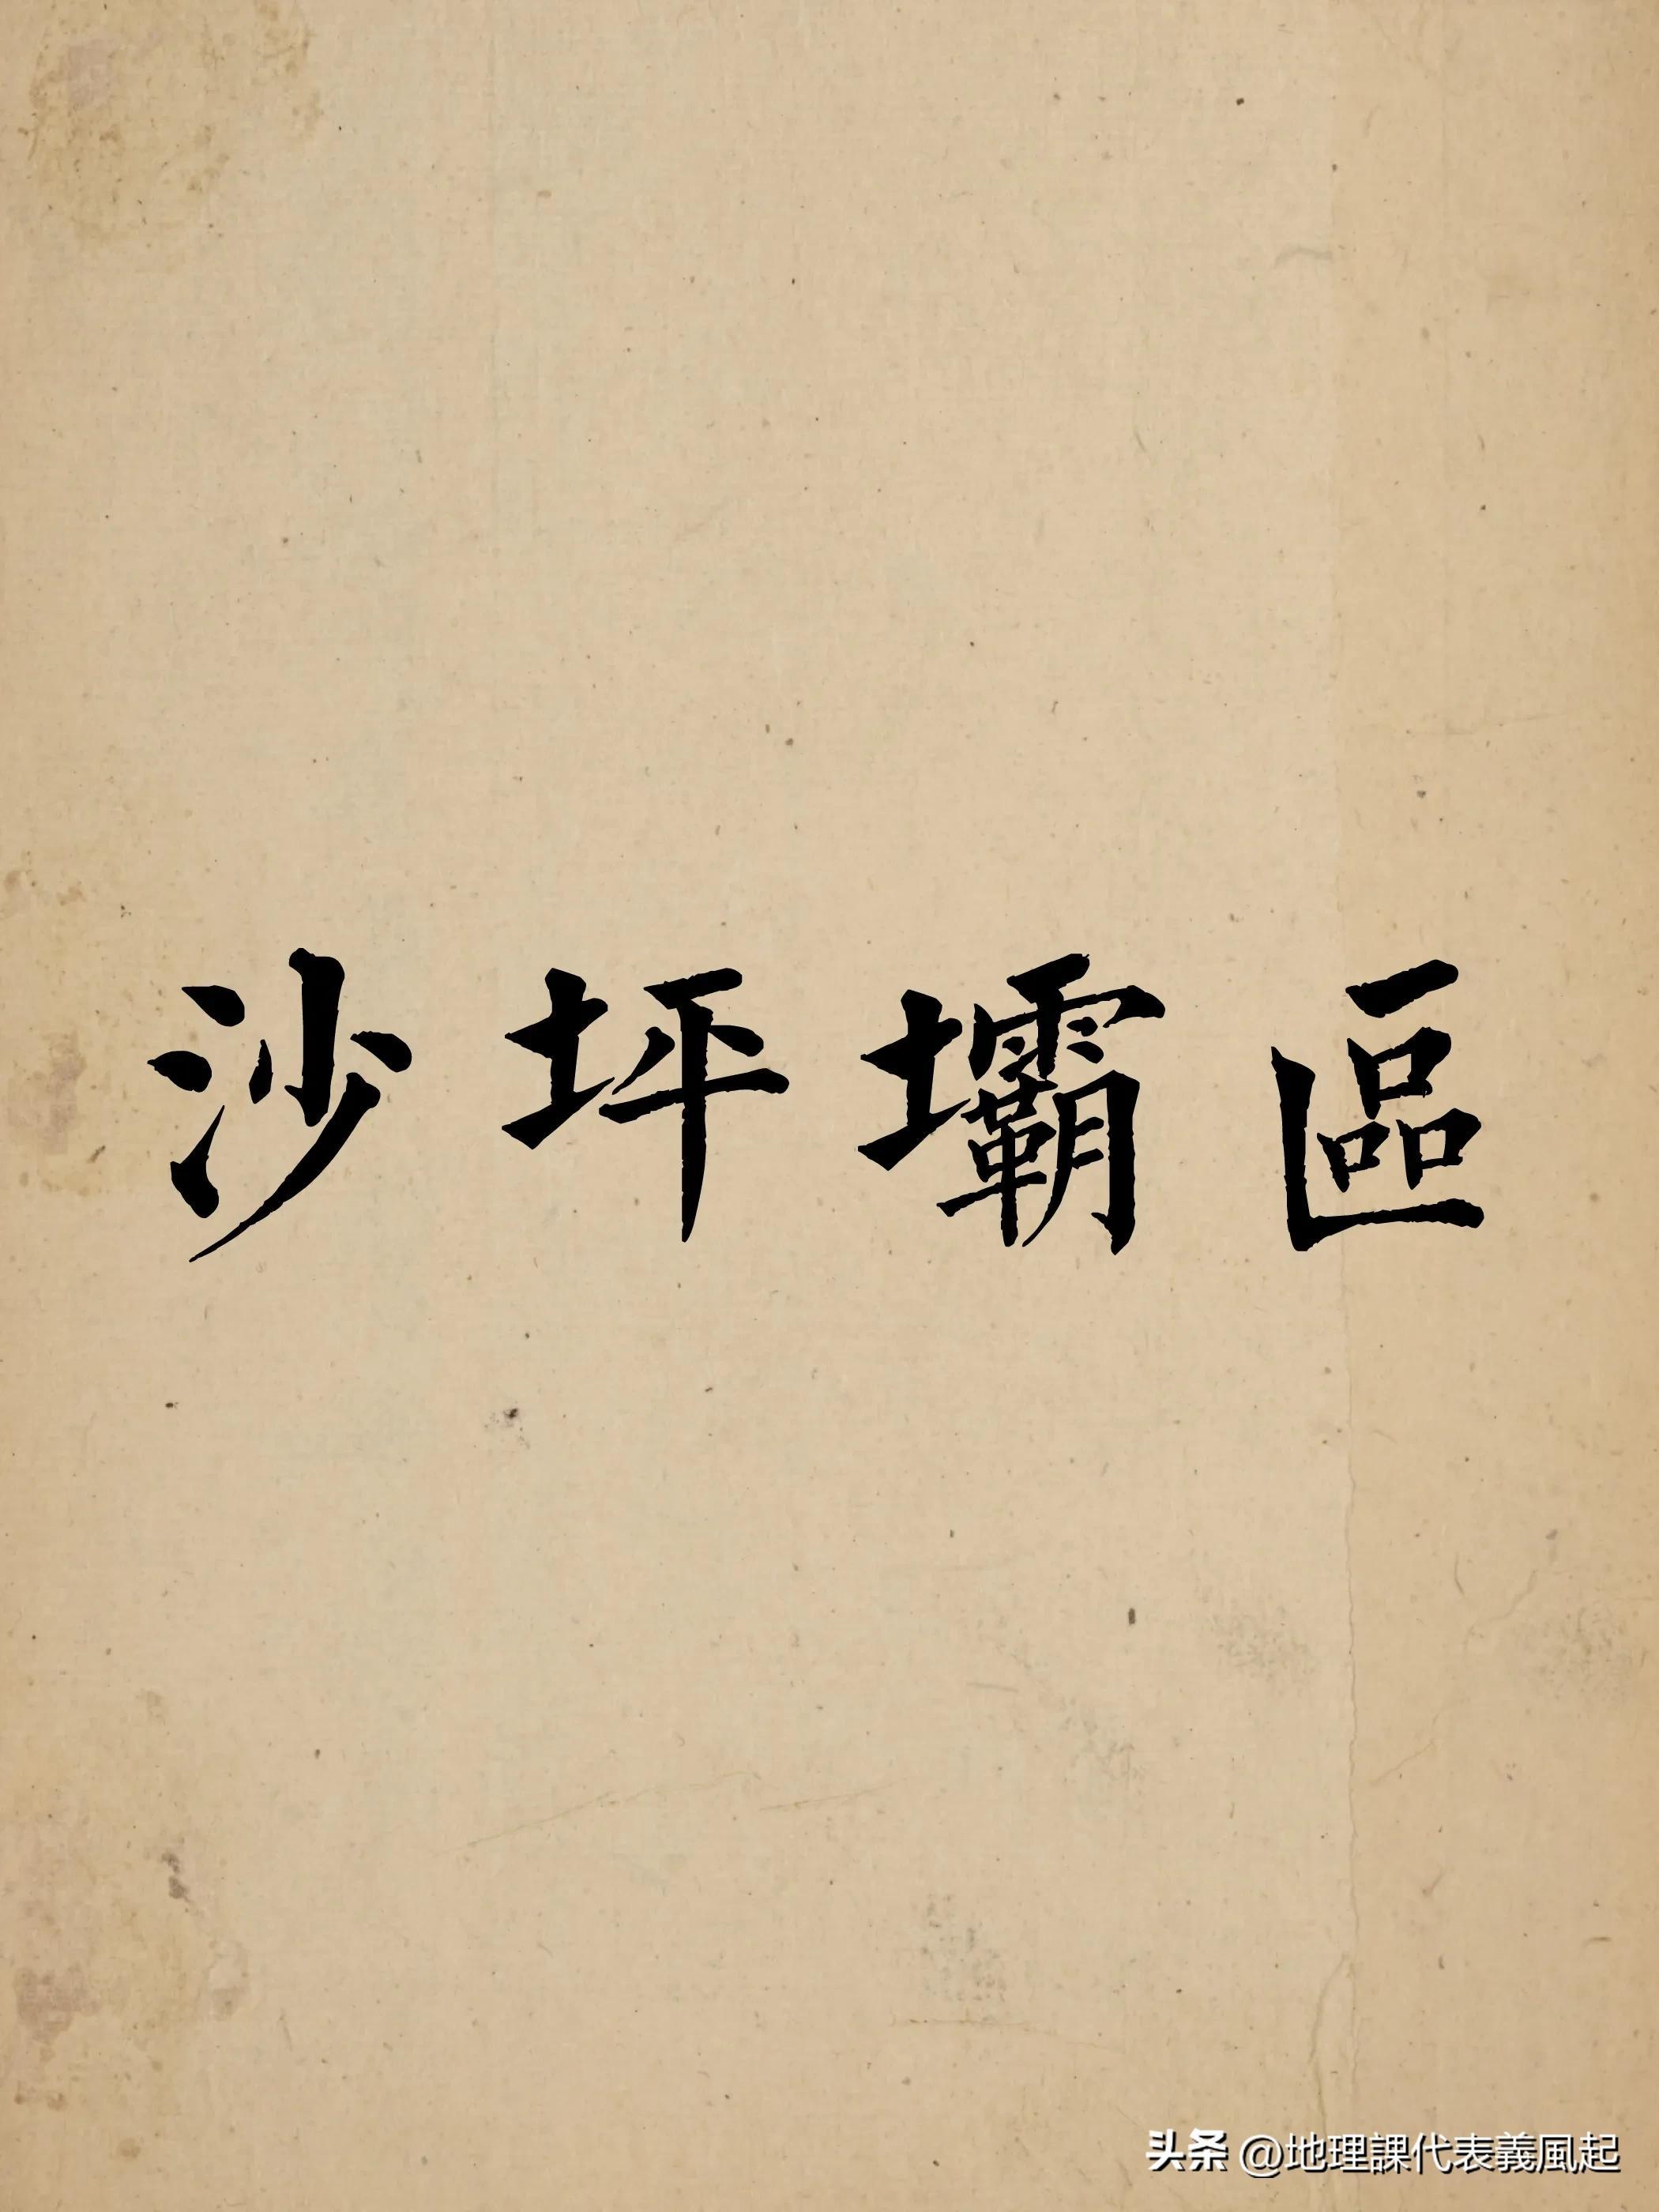 沙坪壩區
头条 @地理課代表義風起